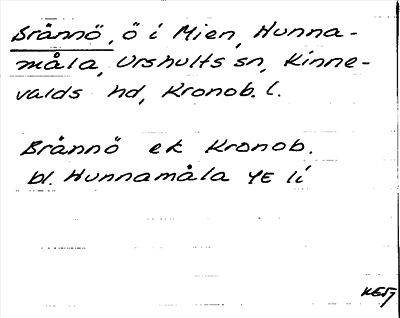 Brännö, ö i Mien, Hunna-
måla, Urshults sn, Kinne-
valds hd, Kronob. l.
Brännö ek Kronob.
bl. Hunnamåla 4E li